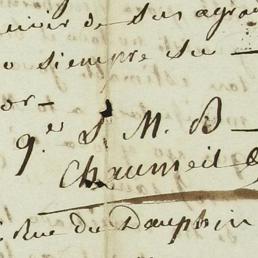 de sus agra
o siempre su
or_
q.e S. M. B
Chaumeil
Rue du Dauphin